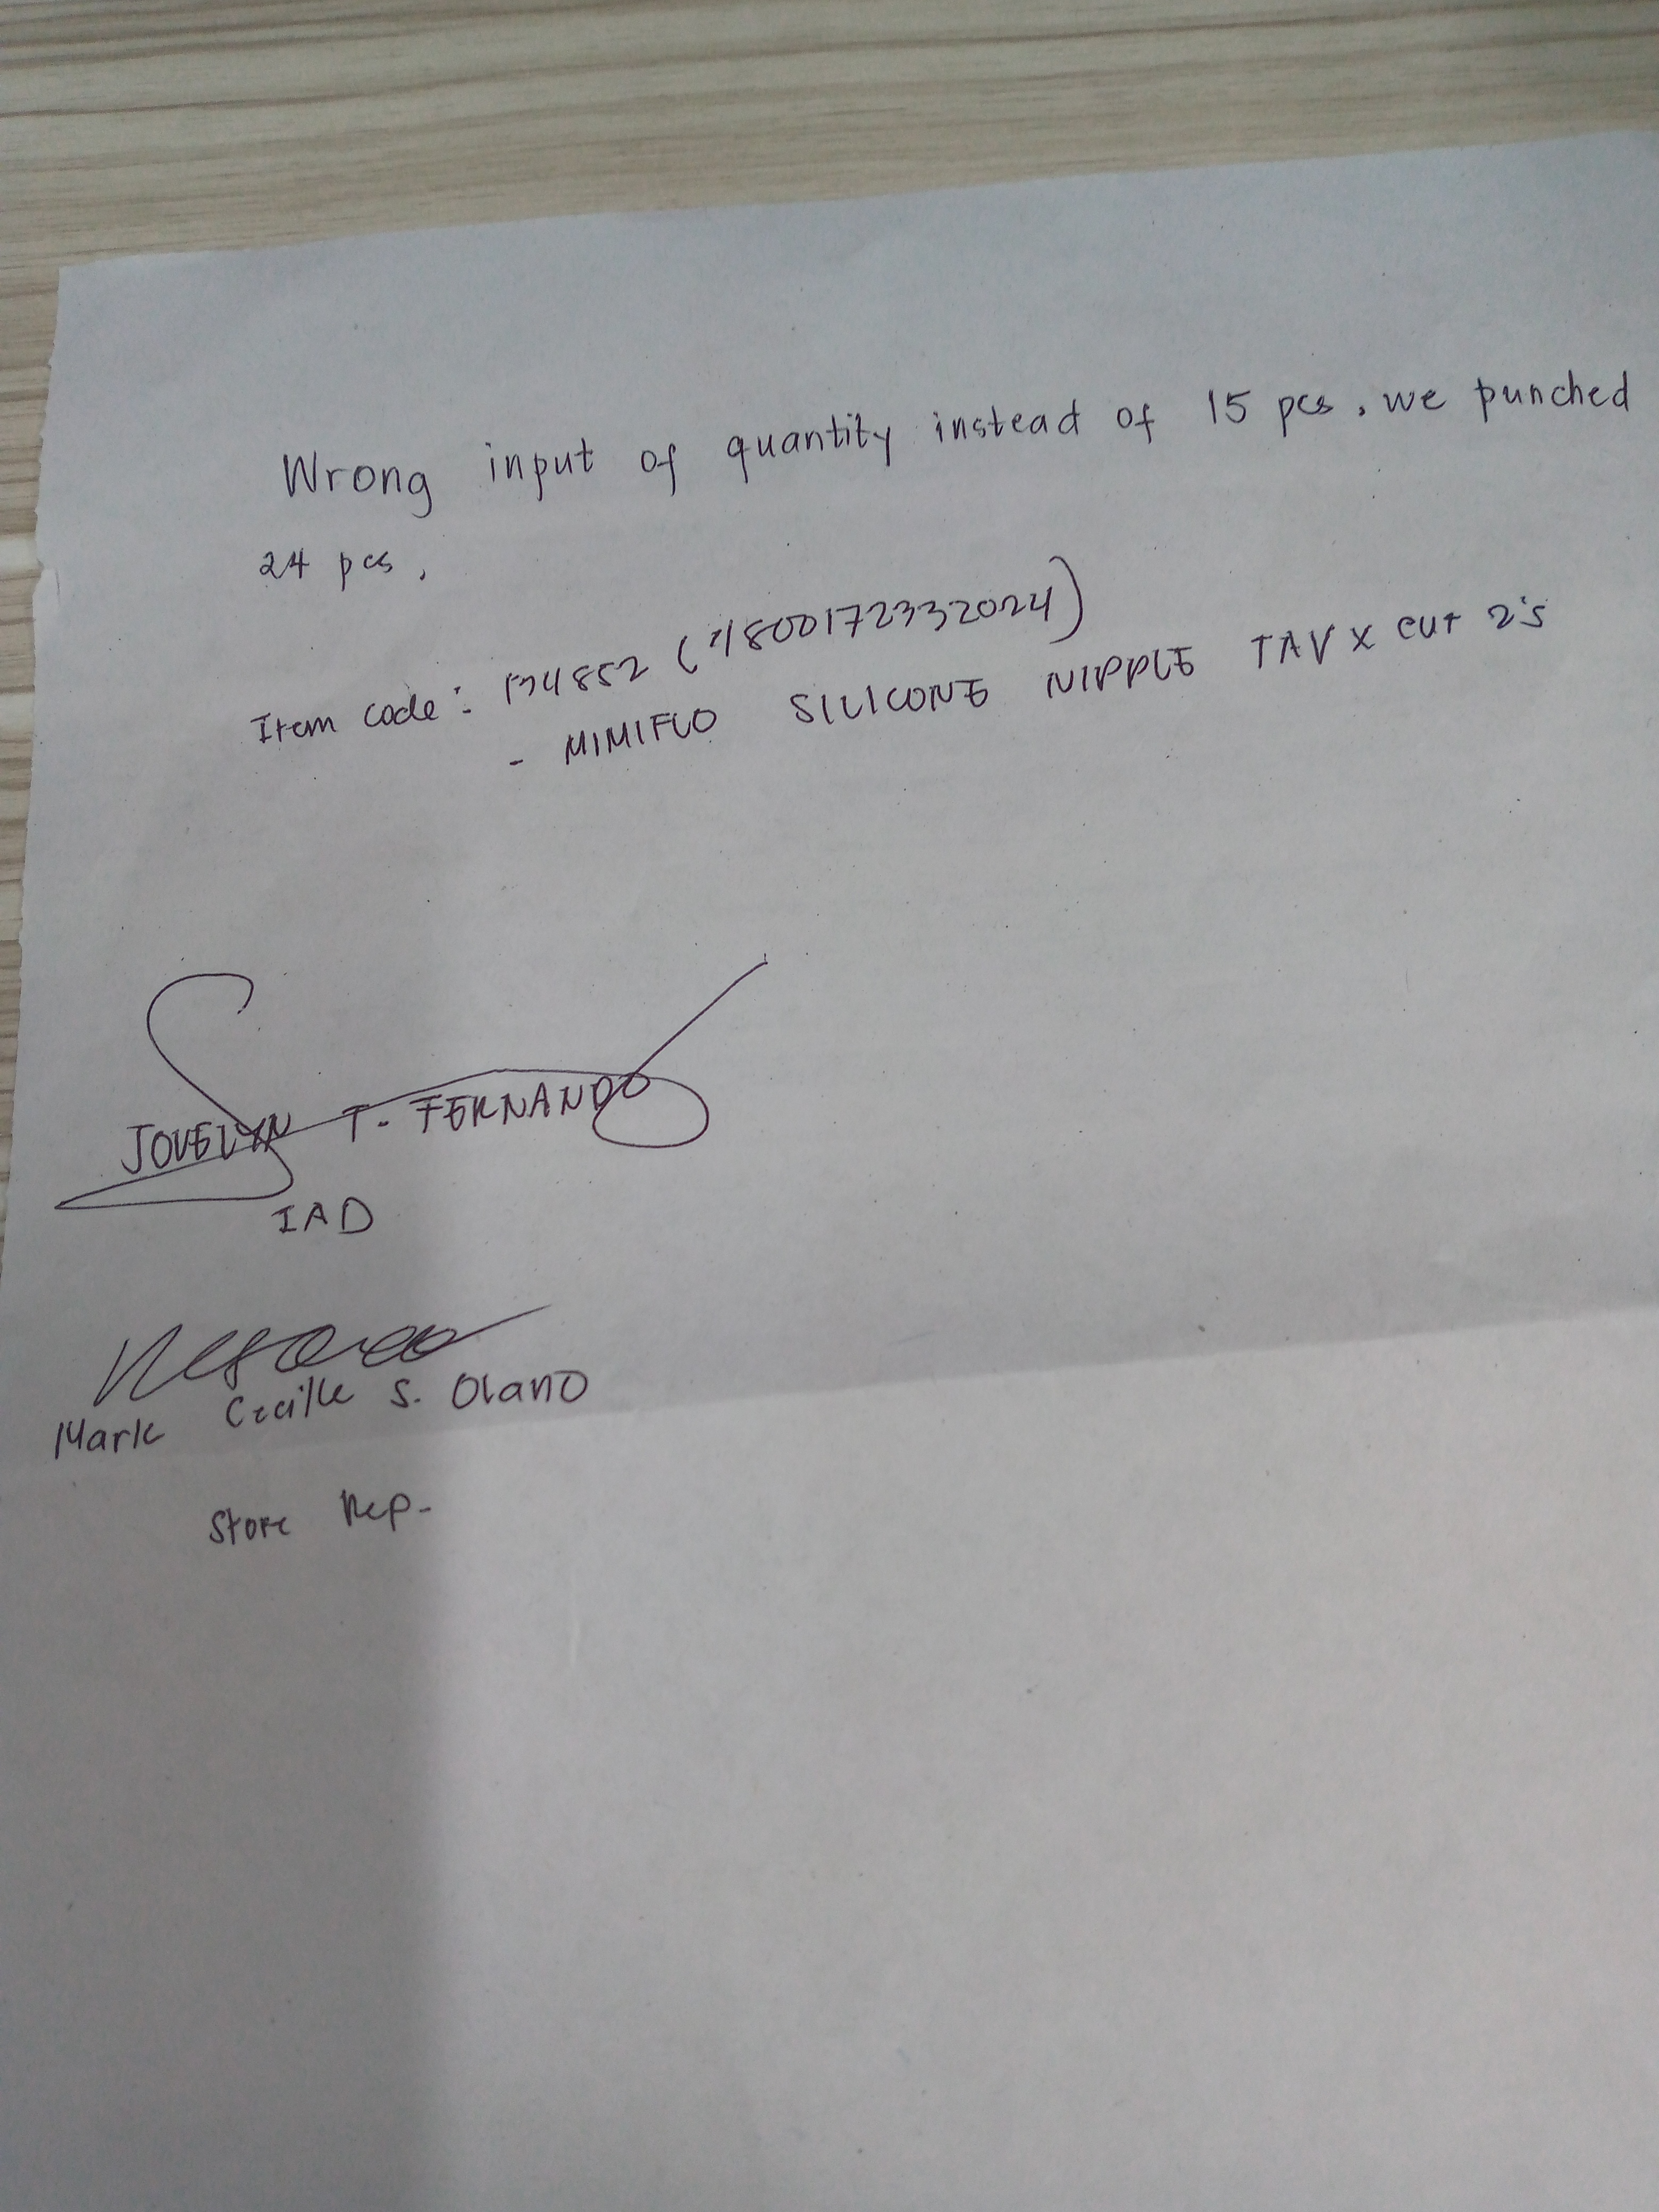 Wrong input of quantity instead of 15 pcs. we punched
24 pcs.
Item code: 134852 (4800172332024)
- MIMIFLO SILICONE NIPPLE TAV X CUT 2's
JOVELYN T. FERNANDO
IAD
Mark Cecille S. Olano
Store Rep.